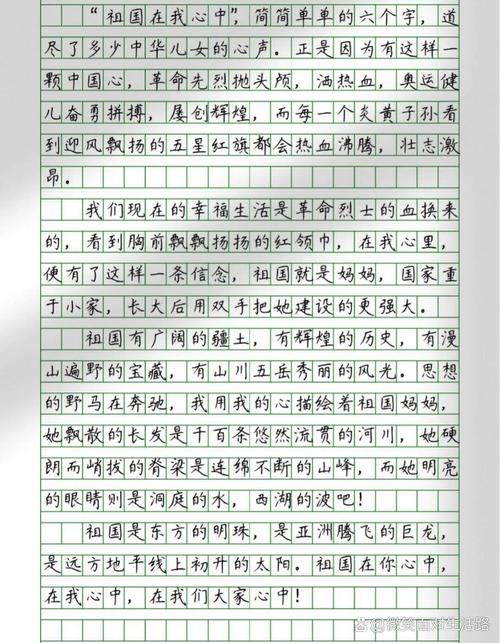 “祖国在我心中”，简简单单的六个字，道
尽了多少中华儿女的心声。正是因为有这样一
颗中国心，革命先烈抛头颅，洒热血，奥运健
儿奋勇拼搏，屡创辉煌，而每一个炎黄子孙看
到迎风飘扬的五星红旗都会热血沸腾，壮志激
昂。
我们现在的幸福生活是革命烈士的血换来
的，看到胸前飘飘扬扬的红领巾，在我心里，
便有了这样一条信念，祖国就是妈妈，国家重
于小家，长大后用双手把她建设的更强大。
祖国有广阔的疆土，有辉煌的历史，有漫
山遍野的宝藏，有山川五岳秀丽的风光。思想
的野马在奔驰，我用我的心描绘着祖国妈妈，
她飘散的长发是千百条悠然流贯的河川，她硬
朗而峭拔的脊梁是连绵不断的山峰，而她明亮
的眼睛则是洞庭的水，西湖的波吧！
祖国是东方的明珠，是亚洲腾飞的巨龙，
是远方地平线上初升的太阳。祖国在你心中，
在我心中，在我们大家心中！
微笑面对生活路